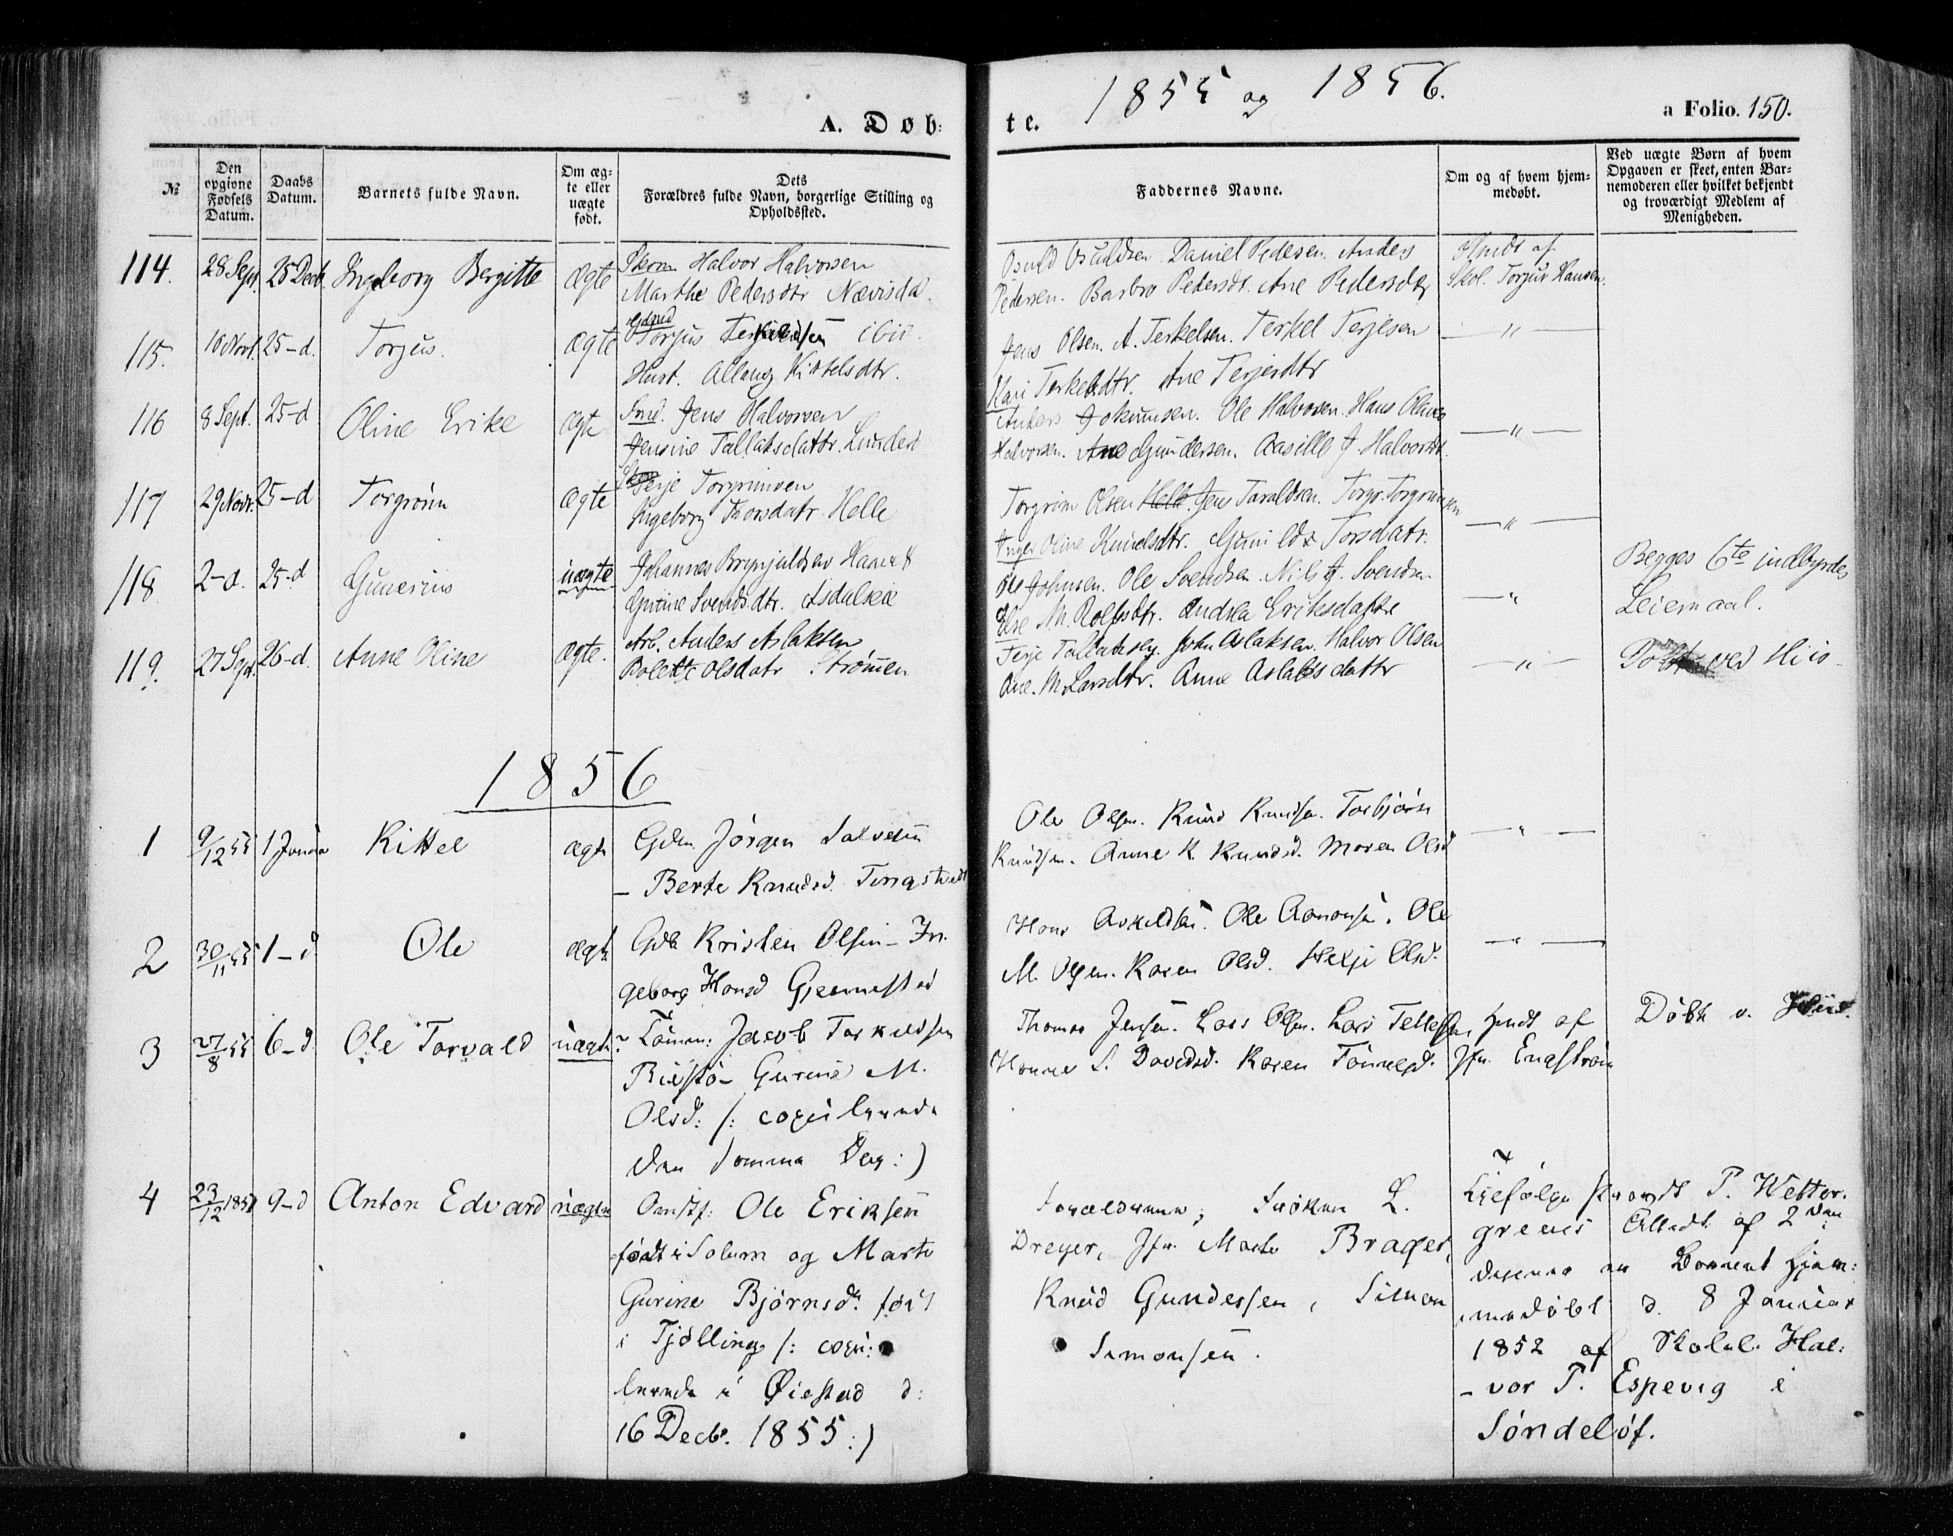 1855 og 1856.
A. Døb-
te.
a Folio. 150.
№
Den opgivne Fødsels Datum.
Daabs Datum.
Barnets fulde Navn.
Om ægte eller uægte født.
Dets Forældres fulde Navn, borgerlige Stilling og Opholdssted.
Faddernes Navne.
Om og af hvem hjemmedøbt.
Ved uægte Børn af hvem Opgaven er skeet, enten Barnemoderen eller hvilket bekjendt og troværdigt Medlem af Menigheden.
114. 28 Sept. 25 Decb. Ingeborg Bergitte ægte Halvor Halvorsen
Marthe Pedersdtr
Osuld Osuldsen. Daniel Pedersen. Anders
Pedersen. Barbro Pedersdt. Ane Pedersdtr
Hmdt af
Skol. Torjus Hansen.
115. 16 Novb. 25-d. Torjus. ægte Torjus ibid.
Hust. Kittelsdtr.
Jens Olsen. A. Terkelsen. Terkel Terjesen
Kari Terkelsdtr. Ane Terjesdtr
— " —
116 8 Sept. 25-d Oline Erike ægte Jens Halvorsen
Jensine Tallaksdattr.
Anders Jokumsen. Ole Halvorsen. Hans Olaus
Halvorsen. Ane Gundersen. Aasille J. Halvorsdt.
— " —
117 29 Novbr. 25-d Torgrim ægte Terje Torgrimsen
Ingeborg Thorsdatr. Helle
Torgrim Olsen Helle. Jens Taraldsen. Torgr. Torgrimsen
Inger Oline Knudsdtr. Gunild Torsdatr.
— " —
118 2-d. 25-d Gunerius uægte Johannes
Gurine Svendsdtr.
Ole Johnsen. Ole Svendsen. Nils A. Svendsen
Else M. Rolfsdtr. Andrea Eriksdattr
— " —
Begges 6te indbyrdes
Leiemaal.
119. 27 Sept. 26-d. Anne Oline ægte. Arb. Anders Aslaksen
Bolette Olsdatr. Strømmen
Terje Tallaksen. John Aslaksen. Halvor Olsen
Ane. M. Larsdtr. Anne Aslaksdattr
— " —
Døbt ved Hiis
1856
1 9/12 55 1 Januar Kittel ægte Gdm. Jørgen Salvesen
– Berte Knudsd. Tingstvedt
Ole Olsen. Knud Knudsen. Torbjørn
Knudsen. Anne K. Knudsd. Maren Olsd
— " —
2 30/11 55 1-d Ole ægte Gdb Kristen Olsen – In-
geborg Hansd Gjennestad
Hans Askildsen. Ole Aanonsen. Ole
M. Olsen. Karen Olsd. Helje Olsd.
— " —
3 27/8 55 6-d Ole Torvald uægte Tømm: Jacob Torkildsen
Gurine M.
Olsd: /: copulerede
den samme Dag :)
Thomas Jensen. Lars Olsen. Lars Tellefsen,
Hanne S. Davidsd. Karen Tønnesd.
Hmdt af
Jfr. Engstrøm
Døbt v. Hiis.
4 23/12 1851 9-d Anton Edvard uægte Ole Eriksen
født i Solum og Marte
Gurine Bjørnsdr. født
i Tjølling /: copu-
lerede i Øiestad d:
16 Decbr. 1855 :)
Forældrene, Frøken L.
Dreyer, Jfr. Marte Brager,
Knud Gundersen, Simon
Simonsen.
Ifølge P. Wetter-
greens Attest af 2den
dennes er Barnet hjem-
medøbt d. 8 Januar
1852 af Skolel. Hal-
vor T. Espevig i
Søndeløf.